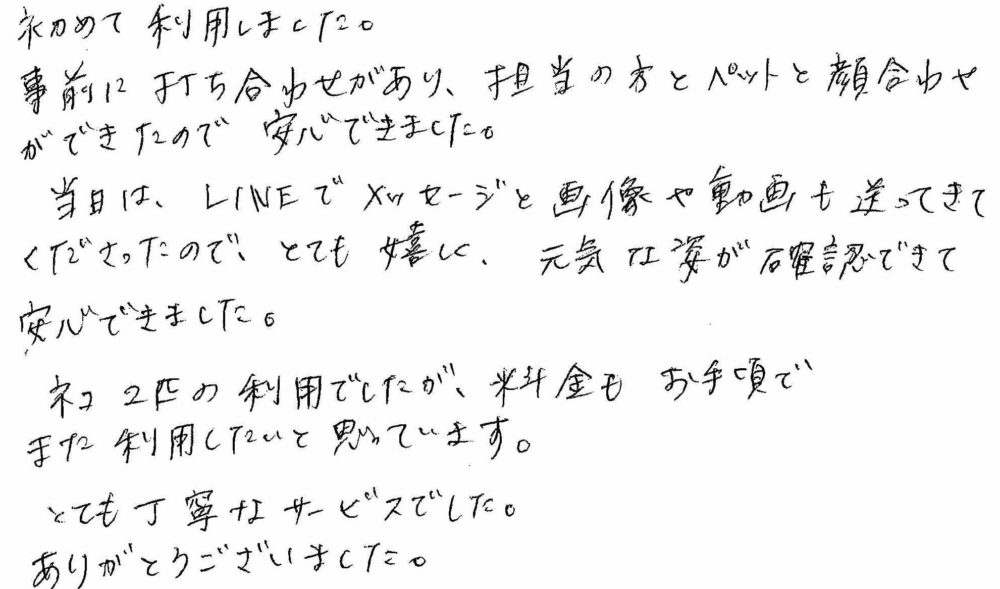 初めて利用しました。
事前に打ち合わせがあり、担当の方とペットと顔合わせ
ができたので安心できました。
当日は、LINEでメッセージと画像や動画も送ってきて
くださったので、とても嬉しく、元気な姿が確認できて
安心できました。
ネコ2匹の利用でしたが、料金もお手頃で
また利用したいと思っています。
とても丁寧なサービスでした。
ありがとうございました。